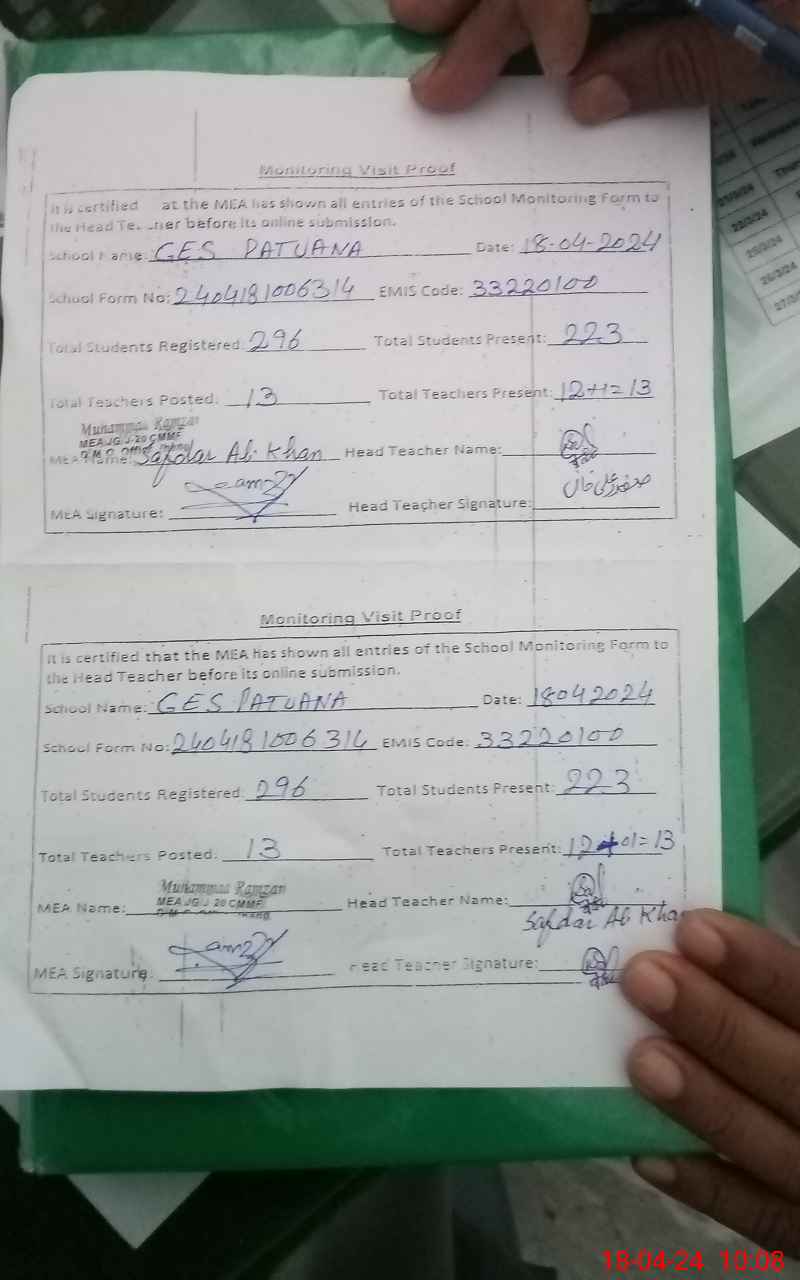 Monitoring Visit Proof
It is certified at the MEA has shown all entries of the School Monitoring Form to
the Head Te. .ner before its online submission.
School Name: GES PATUANA Date: 18-04-2024
School Form No: 2404181006314 EMIS Code: 33220100
Total Students Registered: 296 Total Students Present: 223
Total Teachers Posted: 13 Total Teachers Present: 12+1=13
Muhammad Ramzan
MEA JG J-20 CMMF
MEA Name: Safdar Ali Khan Head Teacher Name:
صفدر علی خاں
MEA Signature: Head Teacher Signature:
Monitoring Visit Proof
It is certified that the MEA has shown all entries of the School Monitoring Form to
the Head Teacher before its online submission.
School Name: GES PATUANA Date: 18042024
School Form No: 2404181006314 EMIS Code: 33220100
Total Students Registered: 296 Total Students Present: 223
Total Teachers Posted: 13 Total Teachers Present: 12+01=13
Muhammad Ramzan
MEA JG J-20 CMMF
MEA Name: Head Teacher Name:
Safdar Ali Kha
MEA Signature: Head Teacher Signature:
22/3/24
25/3/24
26/3/24
18-04-24 10:08